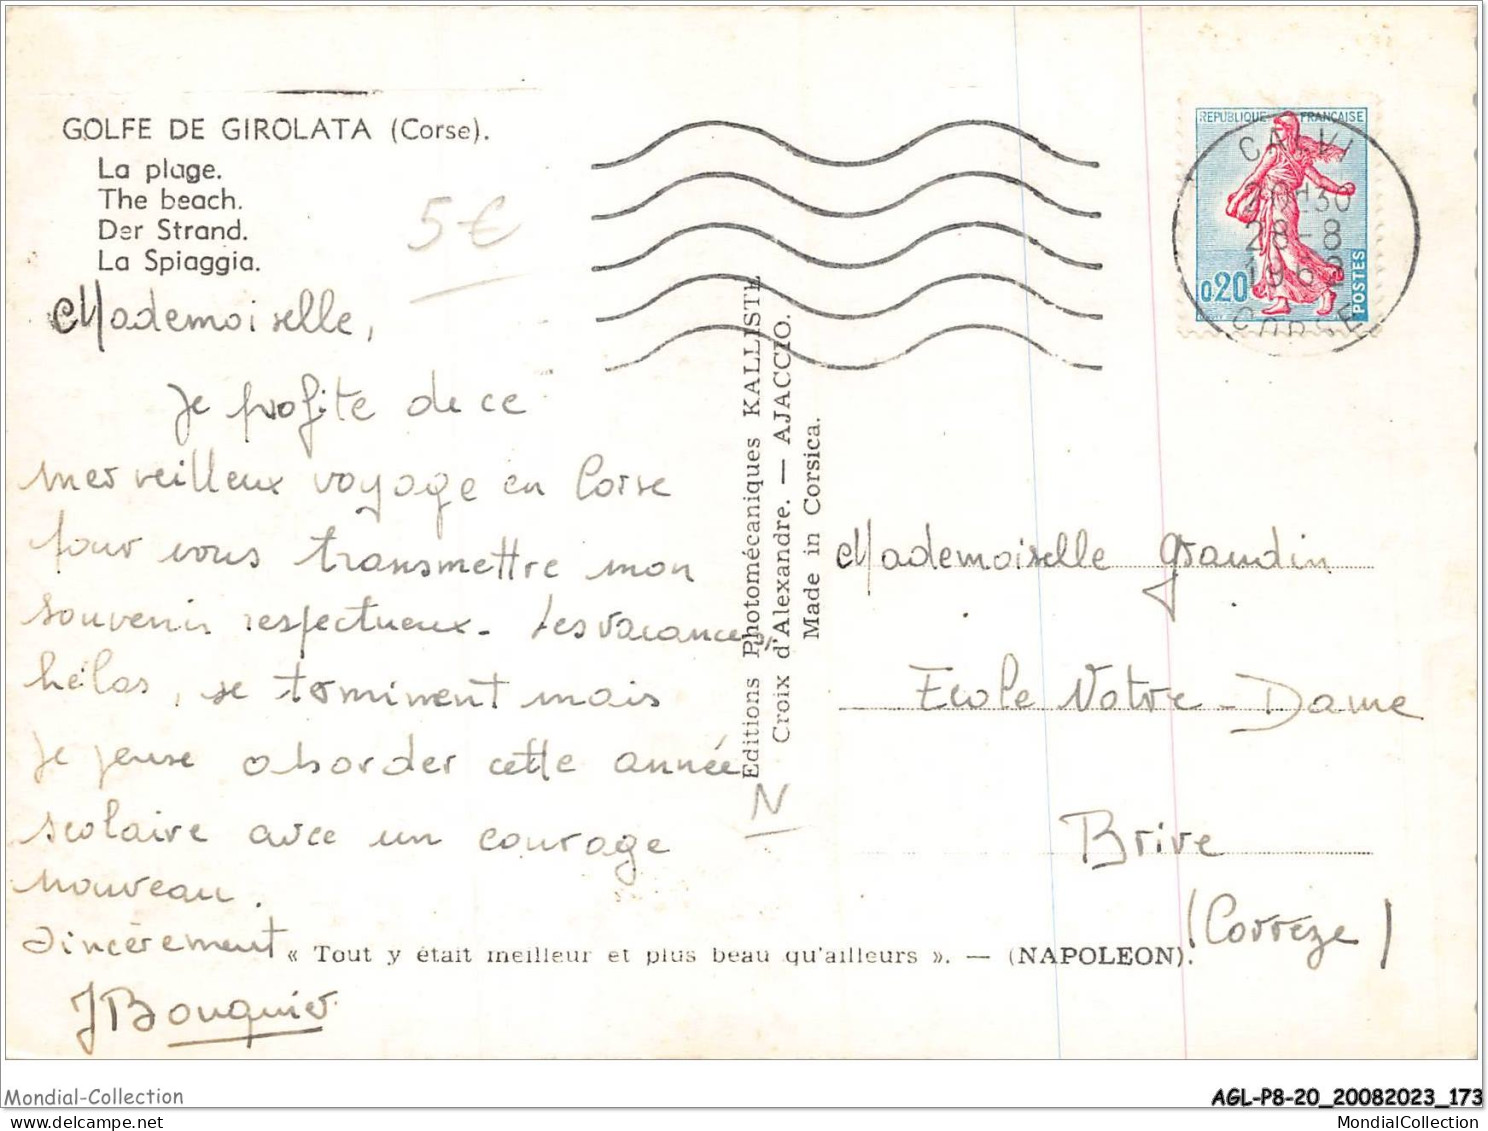 GOLFE DE GIROLATA (Corse).
La plage.
The beach.
Der Strand.
La Spiaggia.
5€
Mademoiselle,
Je profite de ce
merveilleux voyage en Corse
pour vous transmettre mon
souvenir respectueux. Les vacances,
hélas, se terminent mais
je pense aborder cette année
scolaire avec un courage
nouveau.
Sincèrement
JBouquier
« Tout y était meilleur et plus beau qu'ailleurs ». — (NAPOLEON).
Editions Photomécaniques KALLISTE
Croix d'Alexandre. — AJACCIO.
Made in Corsica.
N
REPUBLIQUE FRANCAISE
0,20
POSTES
CALVI
28-8
1962
CORSE
Mademoiselle Graudin
Ecole Notre-Dame
Brive
(Corrèze)
Mondial-Collection
delcampe.net
AGL-P8-20_20082023_173
MondialCollection